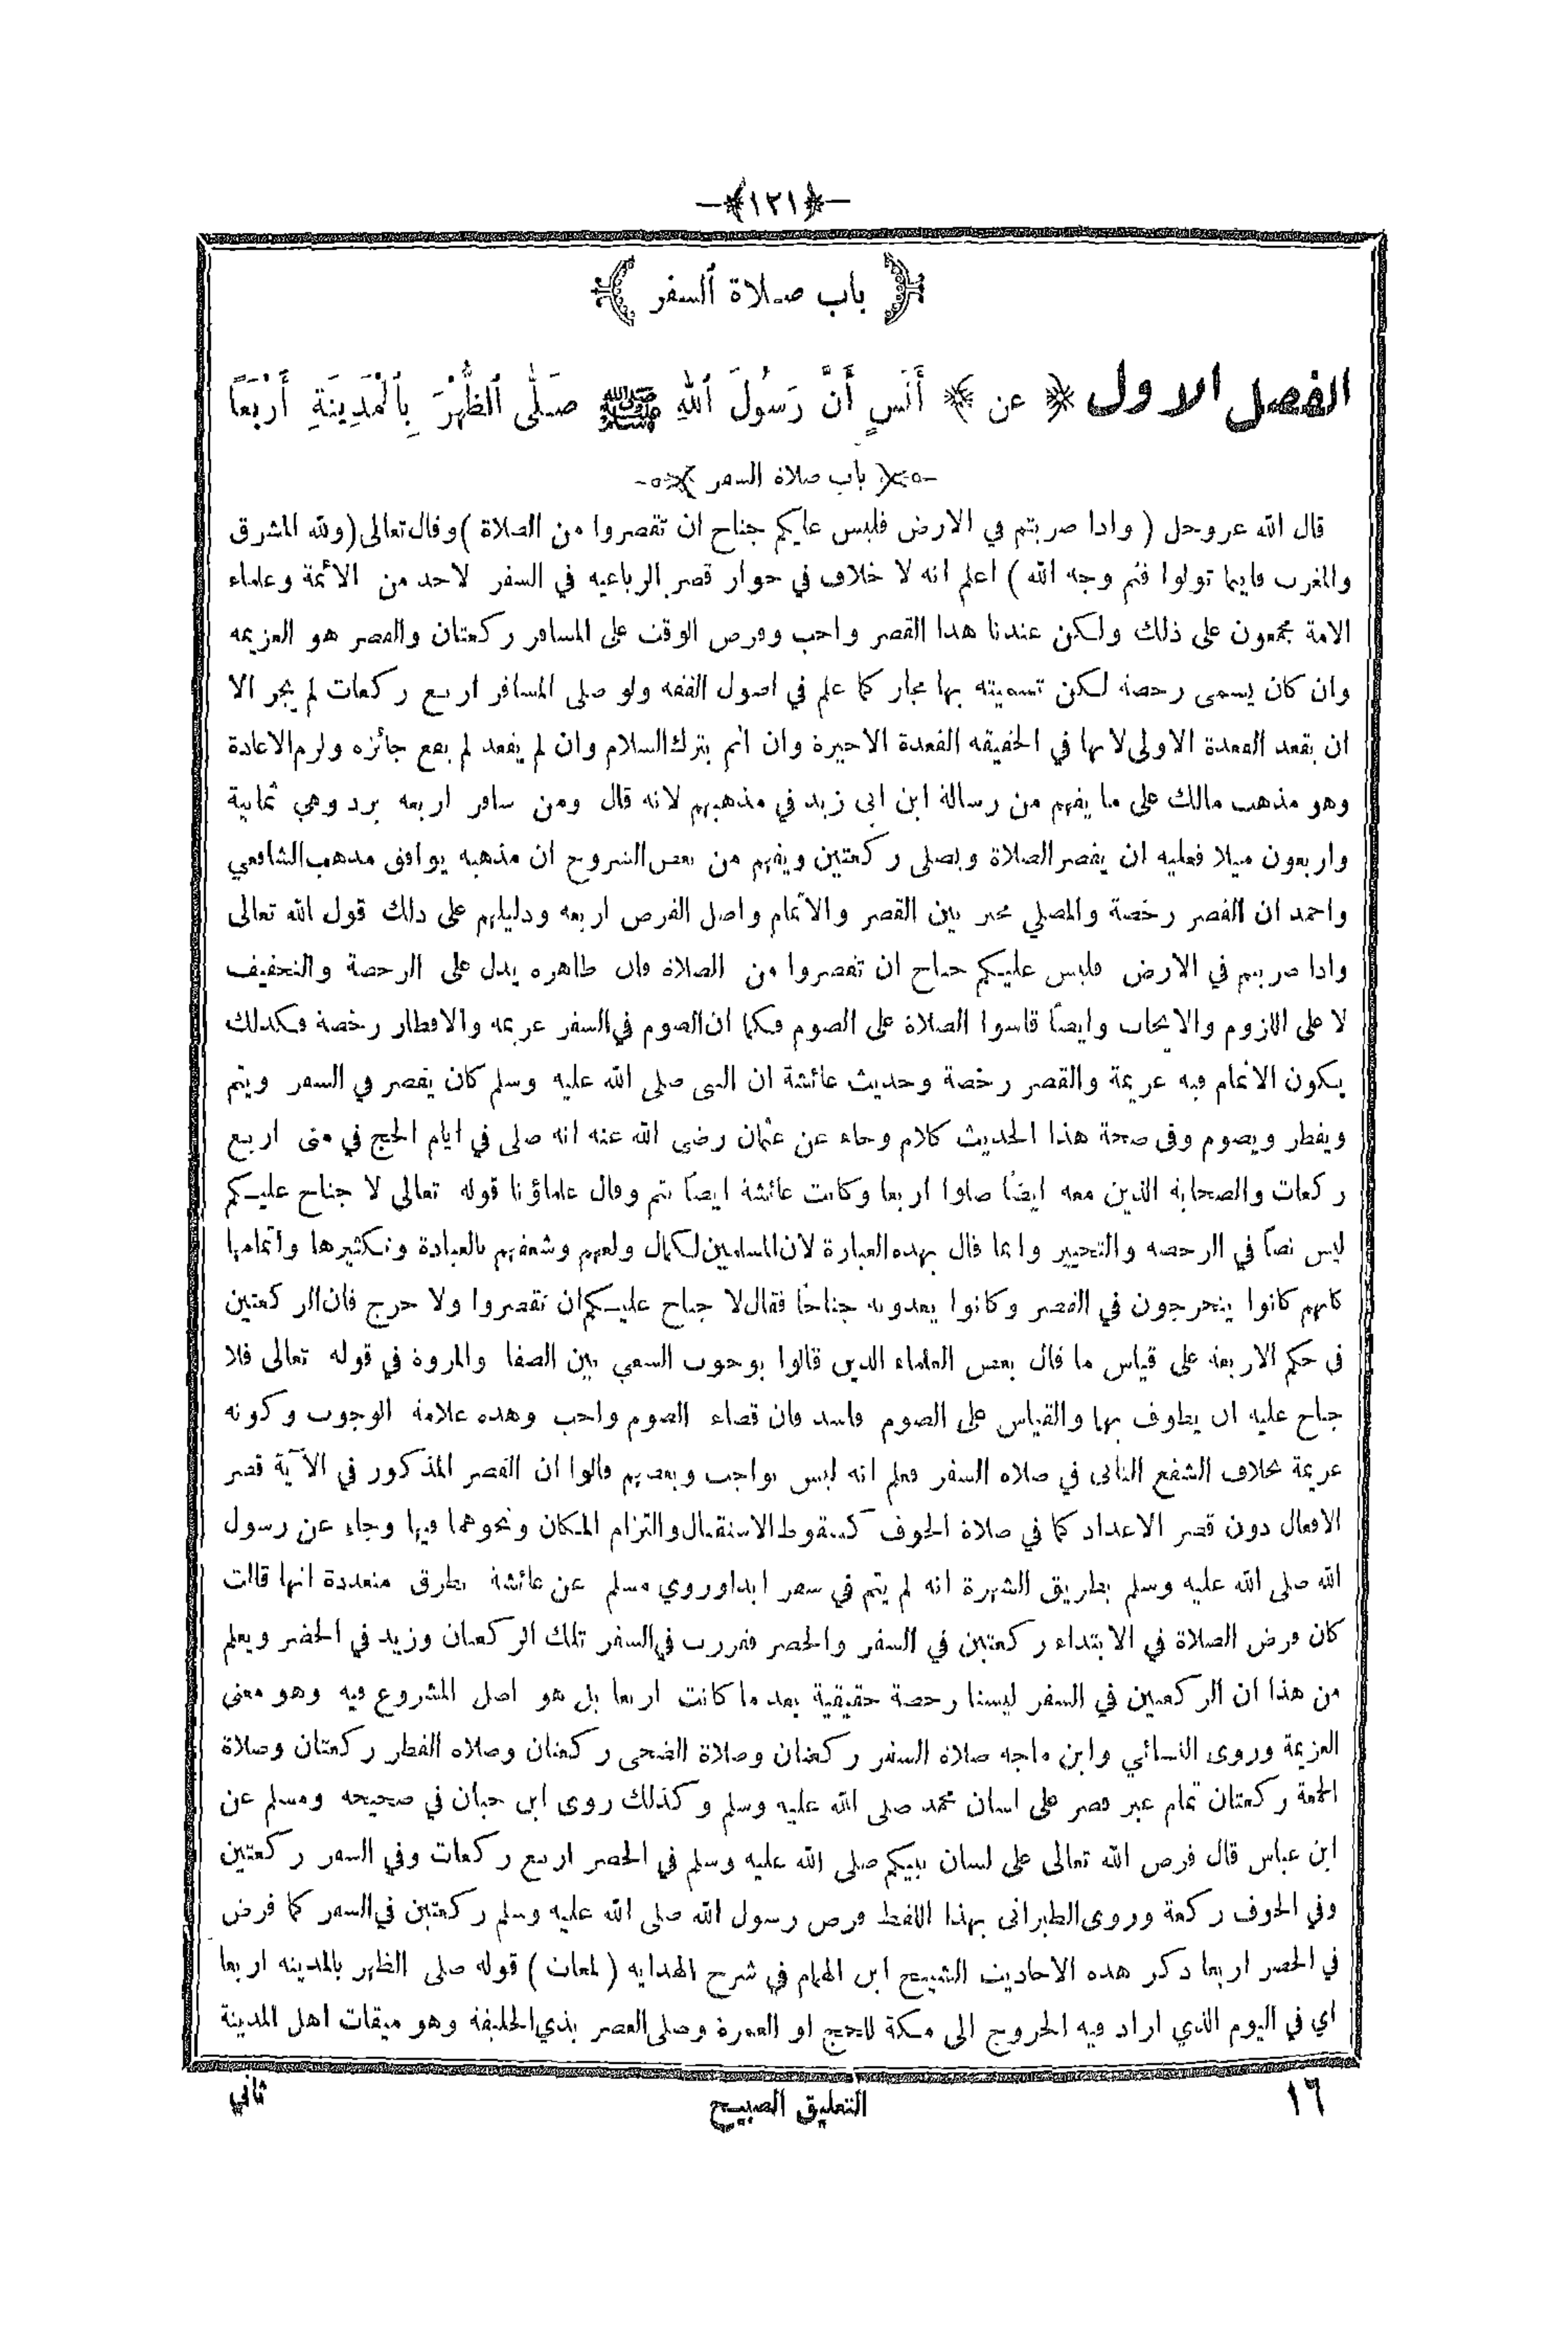 ﴿١٢١﴾
﴿ باب صلاة ٱلسفر ﴾
الفصل الاول ﴿ عن ﴾ أَنَسٍ أَنَّ رَسُولَ ٱللهِ ﷺ صَلَّى ٱلظُّهْرَ بِٱلْمَدِينَةِ أَرْبَعًا
﴿ باب صلاة السفر ﴾
قال الله عز وجل ( واذا ضربتم في الارض فليس عليكم جناح ان تقصروا من الصلاة ) وقال تعالى ( ولله المشرق
والمغرب فاينما تولوا فثم وجه الله ) اعلم انه لا خلاف في جواز قصر الرباعيه في السفر لاحد من الائمة وعلماء
الامة مجمعون على ذلك ولكن عندنا هذا القصر واجب وفرض الوقت على المسافر ركعتان والقصر هو العزيمه
وان كان يسمى رخصة لكن تسميته بها مجاز كما علم في اصول الفقه ولو صلى المسافر اربع ركعات لم يجز الا
ان يقعد القعدة الاولى لانها في الحقيقه القعدة الاخيرة وان اثم بترك السلام وان لم يقعد لم يقع جائزه ولزم الاعادة
وهو مذهب مالك على ما يفهم من رسالة ابن ابى زيد في مذهبهم لانه قال ومن سافر اربعه برد وهي ثمانية
واربعون ميلا فعليه ان يقصر الصلاة ويصلى ركعتين ويفهم من بعض الشروح ان مذهبه يوافق مذهب الشافعي
واحمد ان القصر رخصة والمصلي مخير بين القصر والاتمام واصل الفرض اربعه ودليلهم على ذلك قول الله تعالى
واذا ضربتم في الارض فليس عليكم جناح ان تقصروا من الصلاة فان ظاهره يدل على الرخصة والتخفيف
لا على اللزوم والايجاب وايضاً قاسوا الصلاة على الصوم فكما ان الصوم في السفر عزيمه والافطار رخصة فكذلك
يكون الاتمام فيه عزيمة والقصر رخصة وحديث عائشة ان النبى صلى الله عليه وسلم كان يقصر في السفر ويتم
ويفطر ويصوم وفى صحة هذا الحديث كلام وجاء عن عثمان رضى الله عنه انه صلى في ايام الحج في منى اربع
ركعات والصحابة الذين معه ايضاً صلوا اربعا وكانت عائشة ايضاً تتم وقال علماؤنا قوله تعالى لا جناح عليكم
ليس نصاً في الرخصه والتخيير وانما قال بهذه العبارة لان المسلمين لكمال ولعهم وشغفهم بالعبادة وتكثيرها واتمامها
كانهم كانوا يتحرجون في القصر وكانوا يعدونه جناحاً فقال لا جناح عليكم ان تقصروا ولا حرج فان الركعتين
فى حكم الاربعة على قياس ما قال بعض العلماء الذين قالوا بوجوب السعي بين الصفا والمروة في قوله تعالى فلا
جناح عليه ان يطوف بهما والقياس على الصوم فاسد فان قضاء الصوم واجب وهذه علامة الوجوب وكونه
عزيمة بخلاف الشفع الثانى في صلاه السفر فعلم انه ليس بواجب وبعضهم قالوا ان القصر المذكور في الآية قصر
الافعال دون قصر الاعداد كما في صلاة الخوف كسقوط الاستقبال والتزام المكان ونحوهما فيها وجاء عن رسول
الله صلى الله عليه وسلم بطريق الشهرة انه لم يتم في سفر ابدا وروي مسلم عن عائشة بطرق متعددة انها قالت
كان فرض الصلاة في الابتداء ركعتين في السفر والحضر فقررت في السفر تلك الركعتان وزيد في الحضر ويعلم
من هذا ان الركعتين في السفر ليستا رخصة حقيقية بعد ما كانت اربعا بل هو اصل المشروع فيه وهو معنى
العزيمة وروى النسائي وابن ماجه صلاة السفر ركعتان وصلاة الضحى ركعتان وصلاه الفطر ركعتان وصلاة
الجمعة ركعتان تمام غير قصر على لسان محمد صلى الله عليه وسلم وكذلك روى ابن حبان في صحيحه ومسلم عن
ابن عباس قال فرض الله تعالى على لسان نبيكم صلى الله عليه وسلم في الحضر اربع ركعات وفي السفر ركعتين
وفي الخوف ركعة وروى الطبرانى بهذا اللفظ فرض رسول الله صلى الله عليه وسلم ركعتين في السفر كما فرض
في الحضر اربعا ذكر هذه الاحاديث الشيخ ابن الهمام في شرح الهدايه ( لمعات ) قوله صلى الظهر بالمدينه اربعا
اي في اليوم الذي اراد فيه الخروج الى مكة للحج او العمرة وصلى العصر بذي الحليفة وهو ميقات اهل المدينة
١٦ التعليق الصبيح ثاني